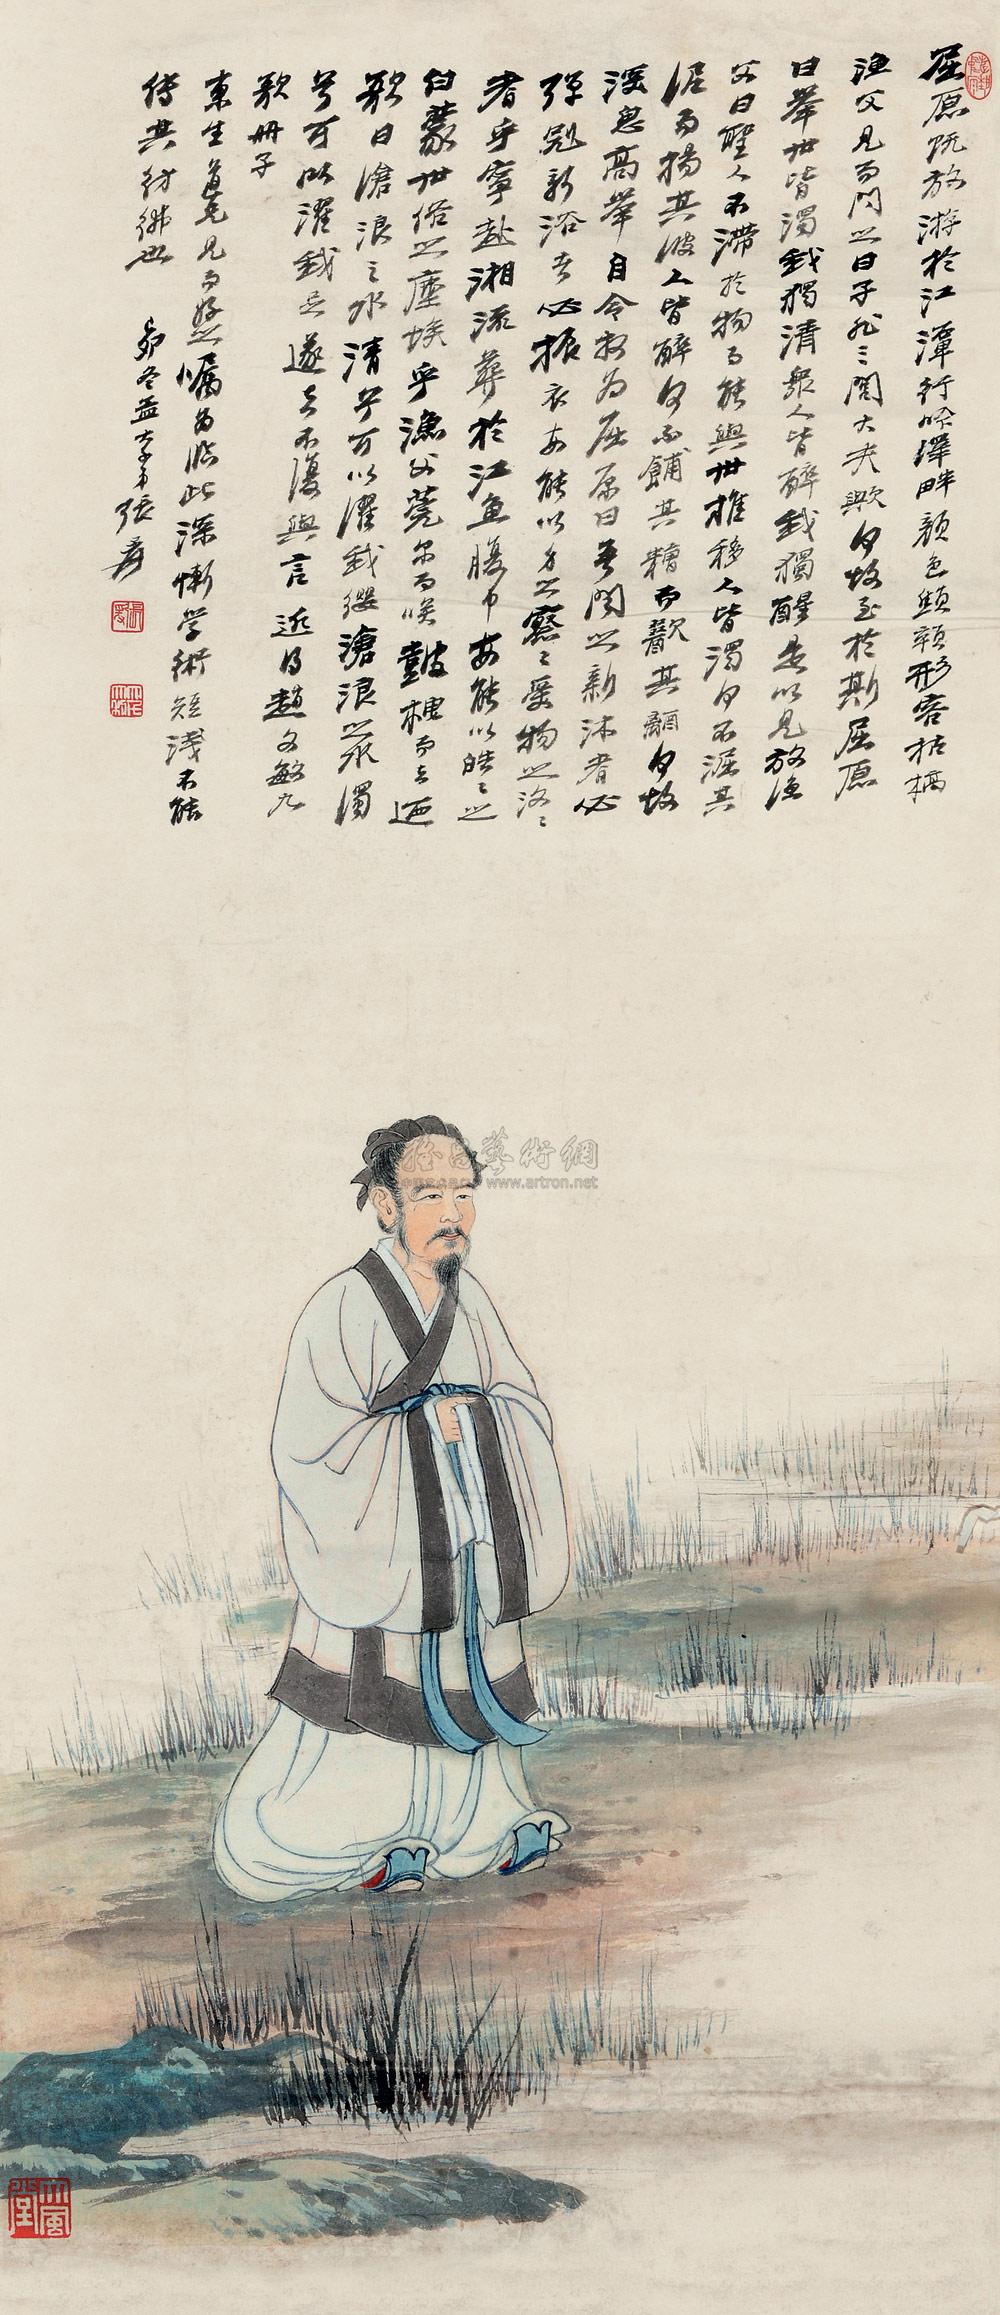 屈原既放游於江潭行吟澤畔顏色顦顇形容枯槁
漁父見而問之曰子非三閭大夫歟何故至於斯屈原
曰舉世皆濁我獨清眾人皆醉我獨醒是以見放漁
父曰聖人不滯於物而能與世推移人皆濁何不淈其
泥而揚其波人皆醉何不餔其糟而歠其醨何故
深思高舉自令放為屈原曰吾聞之新沐者必
彈冠新浴者必振衣安能以身之察察受物之汶汶
者乎寧赴湘流葬於江魚腹中安能以皓皓之
白蒙世俗之塵埃乎漁父莞爾而笑鼓枻而去迺
歌曰滄浪之水清兮可以濯我纓滄浪之水濁
兮可以濯我足遂去不復與言 近得趙文敏九
歌冊子
東生道兄見而好之囑為臨此深慚學術短淺不能
傳其彷彿也 乙卯冬孟大千弟張爰
大風堂
雅昌藝術網
www.artron.net